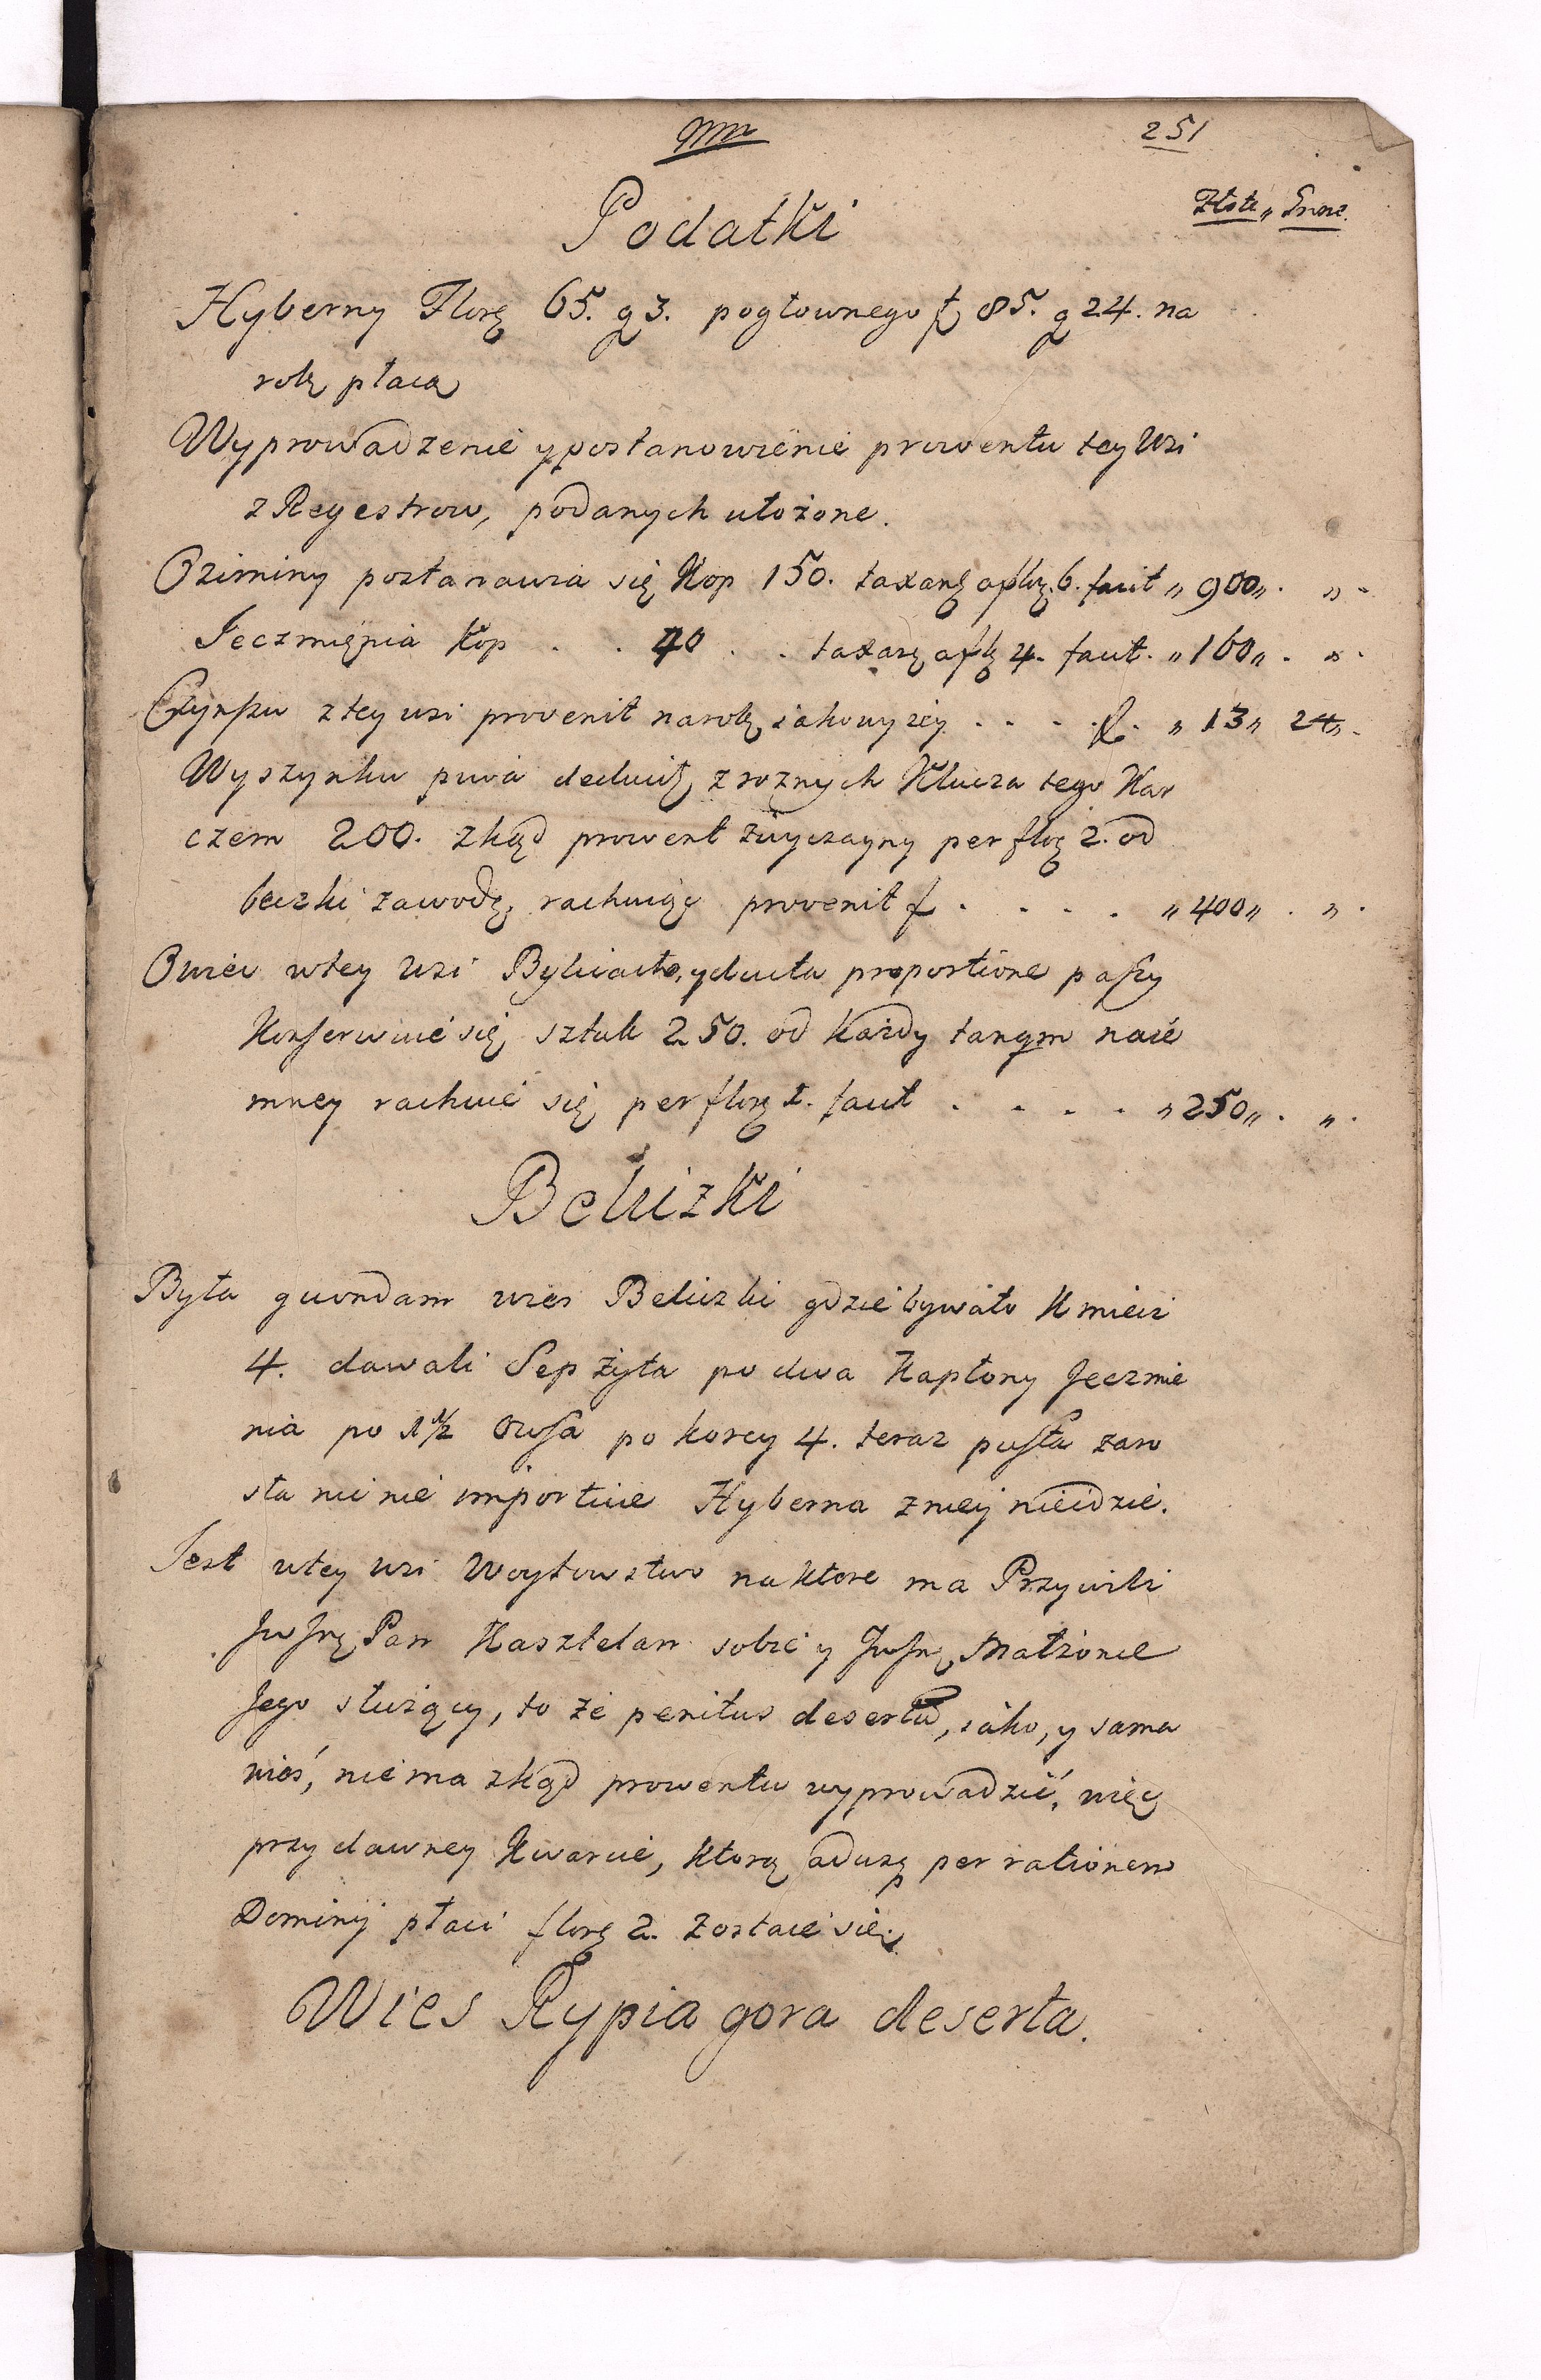 251
Złote „ Grosze.
Podatki
Hyberny Florę 65. g 3. pogłownego f 85. g 24. na
rok płacą
Wyprowadzenie y postanowienie prowentu tey Wsi
z Regestrow, podanych ułożone.
Oziminy postanawia się Kop 150. taxanę a floę. 6. facit „ 900 „ . „ .
Jeczmienia Kop . . 40 . . taxanę a flę 4. facit. „ 160 „ . „ .
Czynszu z tey wsi provenit na rok iako wyżey . . . f. „ 13 „ 24 „ .
Wyszynku piwa deducitę z rożnych Klucza tego Kar
czem 200. zkąd prowent zwyczayny per floę 2. od
beczki zawodę, rachuiąc provenit f . . . . „ 400 „ . „ .
Owiec w tey Wsi Bydła y ducta proportione paszy
Konserwuie się sztuk 250. od Każdy tanqm naie
mney rachuie się per florę 1. facit . . . . „ 250 „ . „ .
Beluizki
Była quondam wies Beluizki gdzie bywało Kmieci
4. dawali Sep żyta po dwa Kapłony Jeczmie
nia po 1 1/2 Owsa po korcy 4. teraz pusta zaro
sła nic nie importuie Hyberna z niej nieidzie.
Jest w tey wsi Woytowstwo na ktore ma Przywili
Jw Jmę Pan Kasztelan sobie y Jw Jmę Małżonce
Jego służący, to że penitus deserta, iako, y sama
wieś, nie ma zkąd prowentu wyprowadzić, więc
przy dawney Kwarcie, ktorą per rationem
Dominij płaci florę 2. zostaie się.
Wies Rypia gora deserta.